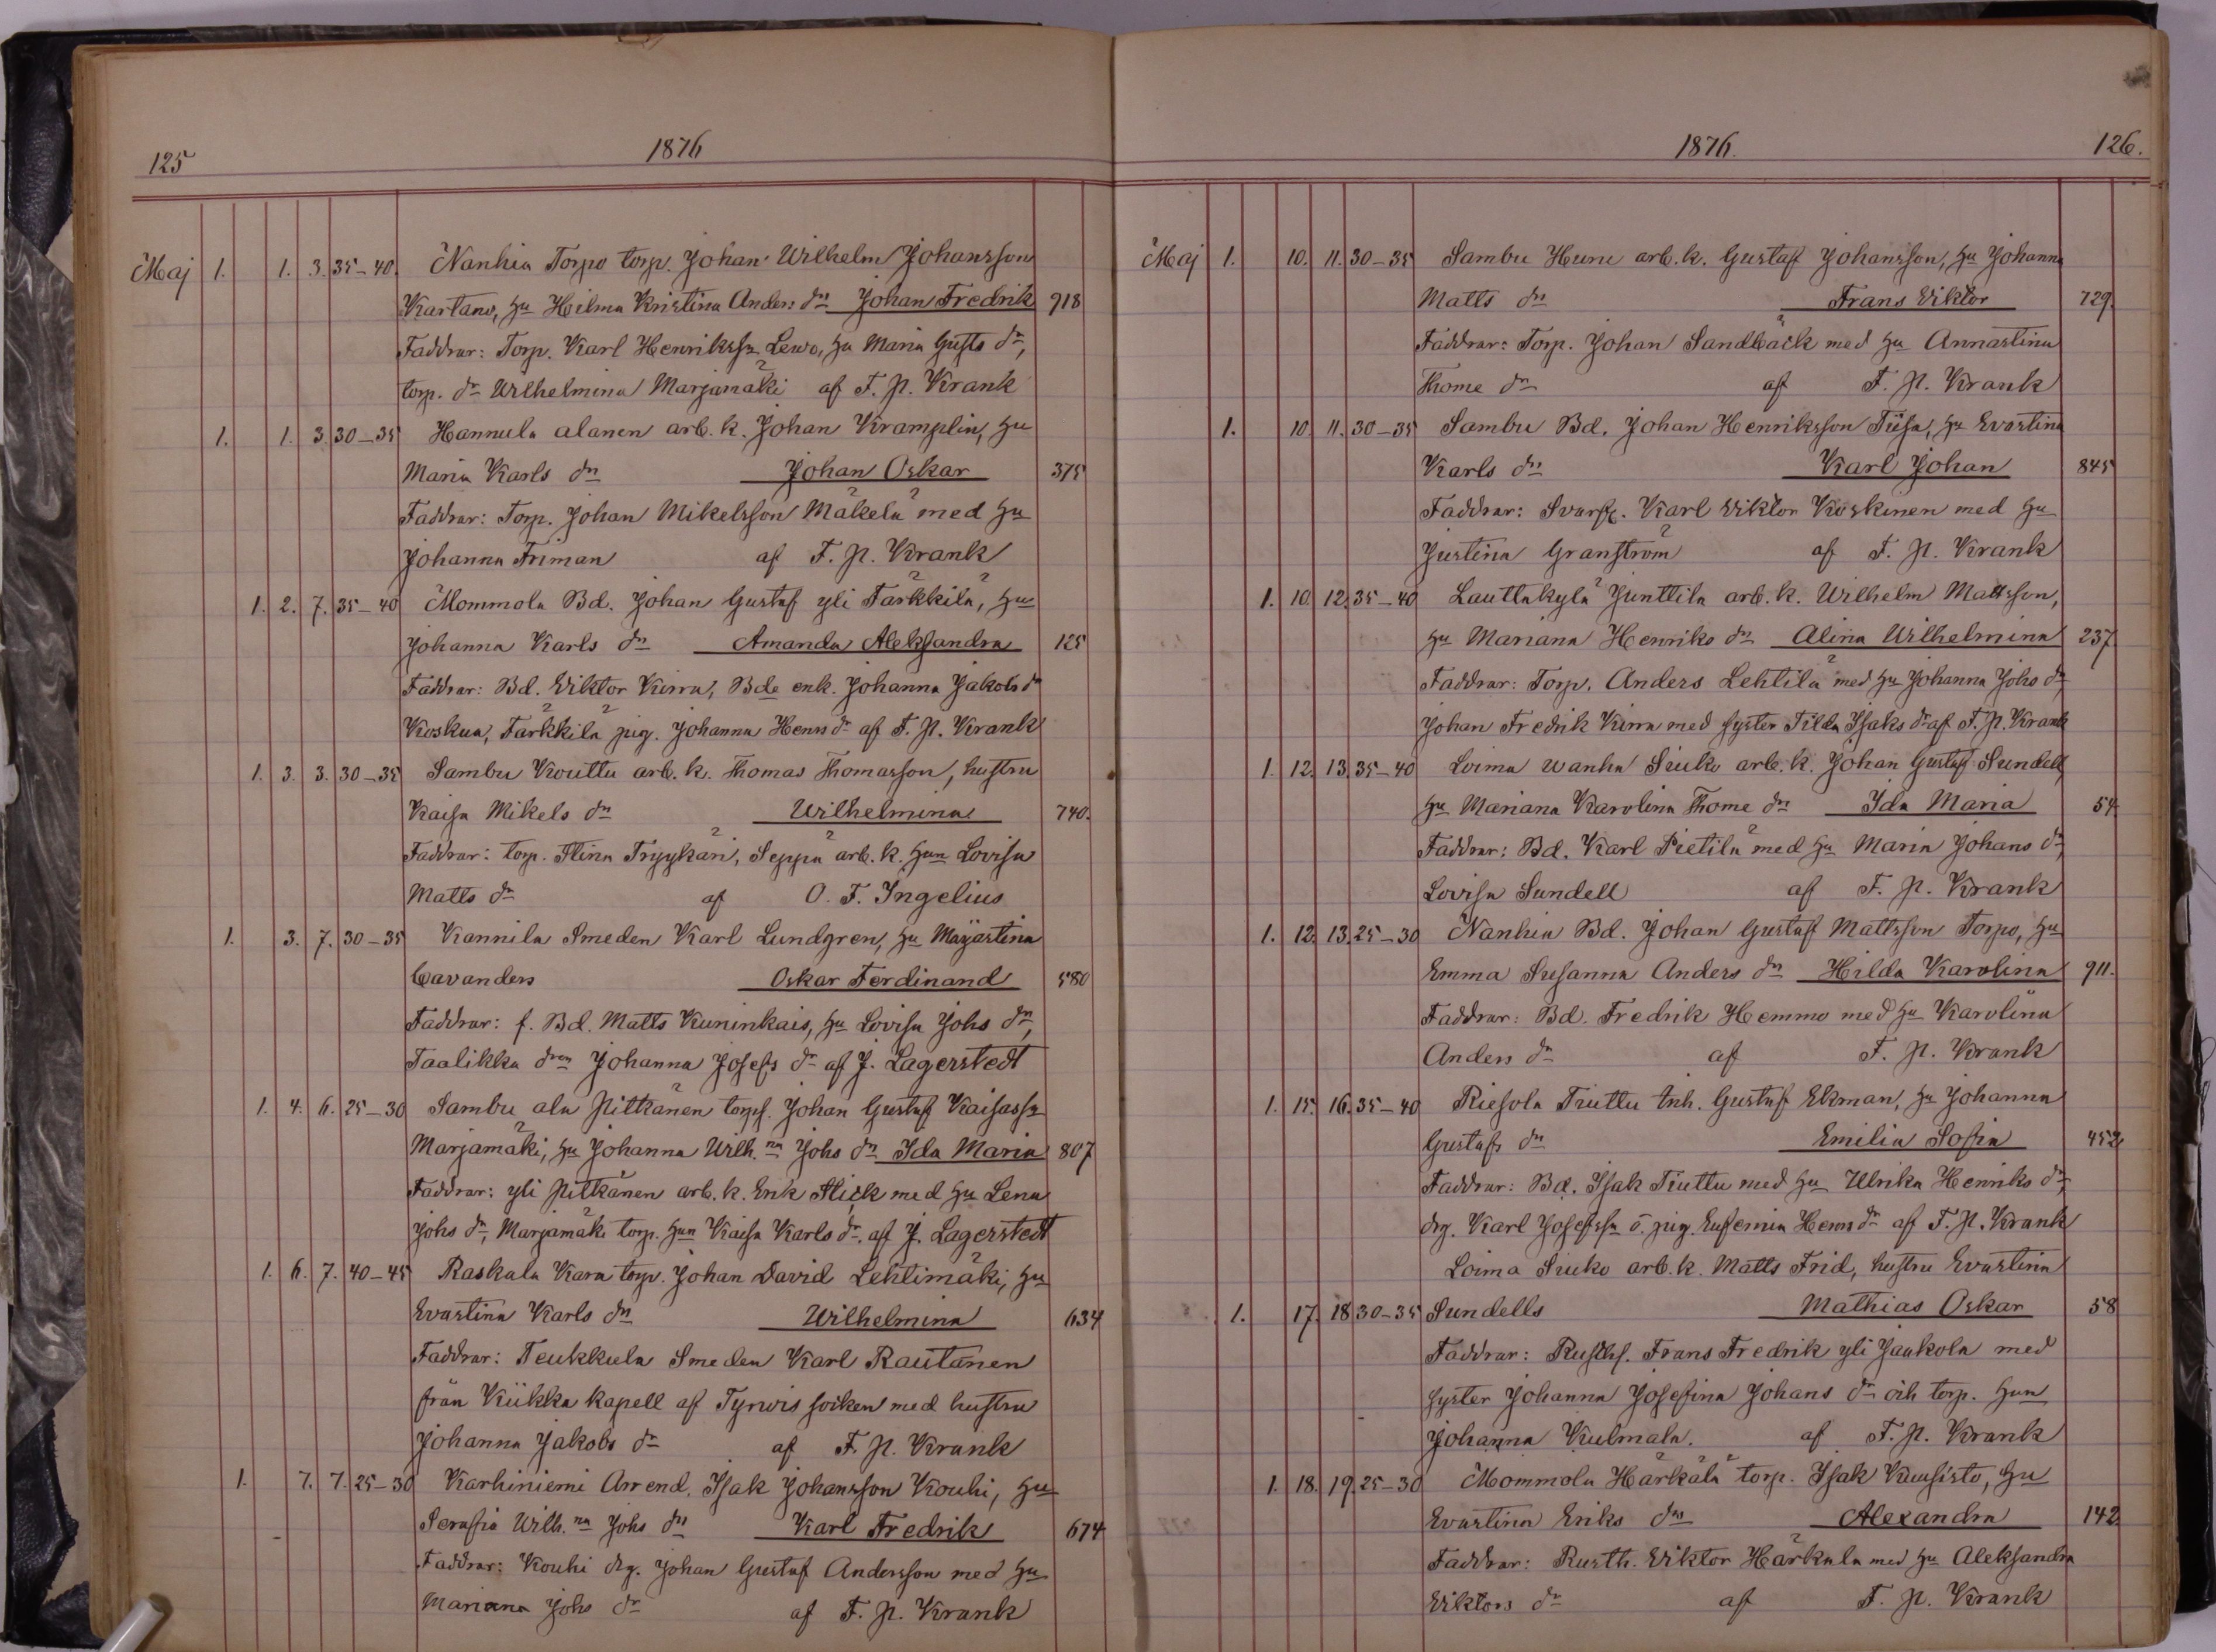 125 1876
Maj 1. 1. 3. 35-40. Nanhia Torpo torp. Johan Wilhelm Johansson
Kartano, hu Hilma Kristina Anders dr Johan Fredrik 918
Faddrar: Torp. Karl Henrikssn Lewo, hu Maria Gustfs dr,
torp. dr Wilhelmina Marjamäki af F. P. Krank
1. 1. 3. 30-35 Hannula alanen arb. k. Johan Kramplin, hu
Maria Karls dr Johan Oskar 375
Faddrar: Torp. Johan Mikelsson Mäkelä med hu
Johanna Friman af F. P. Krank
1. 2. 7. 35-40 Mommola Bd. Johan Gustaf yli Tärkkilä, hu
Johanna Karls dr Amanda Aleksandra 125
Faddrar: Bd. Viktor Kirra, Bde enk. Johanna Jakobs dr
Koskua, Tärkkilä pig. Johanna Henrs dr af F. P. Krank
1. 3. 3. 30-35 Sambu Kouttu arb. k. Thomas Thomasson, hustru
Kaisa Mikels dr Wilhelmina 740.
Faddrar: torp. Stina Tryykäri, Seppä arb. k. hun Lovisa
Matts dr af O. F. Ingelius
1. 3. 7. 30-35 Kannila Smeden Karl Lundgren, hu Majastina
Cavanders Oskar Ferdinand 580
Faddrar: f. Bd. Matts Kuninkais, hu Lovisa Johs dr,
Taalikka dren Johanna Josefs dr af J. Lagerstedt
1. 4. 6. 25-30 Sambu ala Pitkänen torps. Johan Gustaf Kaisassn
Marjamäki, hu Johanna Wilh.na Johs dr Ida Maria 807
Faddrar: yli Pitkänen arb. k. Erik Slick med hu Lena
Johs dr, Marjamäki torp. hun Kaisa Karls dr. af J. Lagerstedt
1. 6. 7. 40-45 Raskala Kara torp. Johan David Lehtimäki, hu
Evastina Karls dr Wilhelmina 634
Faddrar: Teukkula Smeden Karl Rautanen
från Kiikka kapell af Tyrwis socken med hustru
Johanna Jakobs dr af F. P. Krank
1. 7. 7. 25-30 Karhiniemi Arrend. Isak Johansson Kouhi, hu
Serafia Wilh.na Johs dr Karl Fredrik 674
Faddrar: Kouhi drg. Johan Gustaf Andersson med hu
Mariana Johs dr af F. P. Krank
1876. 126.
Maj 1. 10. 11. 30-35 Sambu Huru arb. k. Gustaf Johansson, hu Johanna
Matts dr Frans Viktor 729.
Faddrar: Torp. Johan Sandbäck med hu Annastina
Thome dr af F. P. Krank
1. 10. 11. 30-35 Sambu Bd. Johan Henriksson Tiisa, hu Evastina
Karls dr Karl Johan 845
Faddrar: Svarf. Karl Viktor Koskinen med hu
Justina Granström af F. P. Krank
1. 10. 12. 35-40 Lauttakylä Junttila arb. k. Wilhelm Mattsson,
hu Mariana Henriks dr Alina Wilhelmina 237
Faddrar: Torp. Anders Lehtilä med hu Johanna Johs dr,
Johan Fredrik Kirra med syster Tilda Isaks dr af F. P. Krank
1. 12. 13. 35-40 Loima wanha Siuko arb. k. Johan Gustaf Sundell,
hu Mariana Karolina Thome dr Ida Maria 54.
Faddrar: Bd. Karl Pietilä med hu Maria Johans dr,
Lovisa Sundell af F. P. Krank
1. 12. 13. 25-30 Nanhia Bd. Johan Gustaf Mattsson Torpo, hu
Emma Susanna Anders dr Hilda Karolina 911.
Faddrar: Bd. Fredrik Hemmo med hu Karolina
Anders dr af F. P. Krank
1. 15. 16. 35-40 Riesola Tiuttu inh. Gustaf Ekman, hu Johanna
Gustafs dr Emilia Sofia 452
Faddrar: Bd. Isak Tiuttu med hu Ulrika Henriks dr,
drg. Karl Josefssn o. pig. Eufemia Henrs dr af F. P. Krank
Loima Siuko arb. k. Matts Frid, hustru Evastina
1. 17. 18 30-35 Sundells Mathias Oskar 58
Faddrar: Rusths. Frans Fredrik yli Jaakola med
syster Johanna Josefina Johans dr och torp. hun
Johanna Kulmala. af F. P. Krank
1. 18. 19. 25-30 Mommola Härkälä torp. Isak Kuusisto, hu
Evastina Eriks dr Alexandra 142.
Faddrar: Rusth. Viktor Härkälä med hu Aleksandra
Viktors dr af F. P. Krank